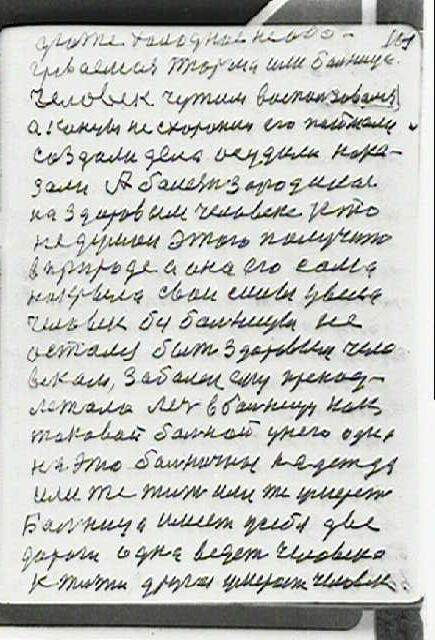 даже холодное не обо-
греваемая тюрма или больница.
Человек чутим воспользовался
а концы не схоронил его поймали
создали дела осудили нока-
зали А болезн зародилас
на здоровым человеке Кто
не думал этого получить
в природе а она его сама
накрыла свои силы увела
человек бы больницы не
остался быт здоровым чело
веком, заболел ему преход-
лежало леч в больницу как
таковой больной у него одна
на это болничные надежда
или же жит или же умереть
Больница имеет у себя две
дороги одна ведет человека
к жизни другая умерает человек.